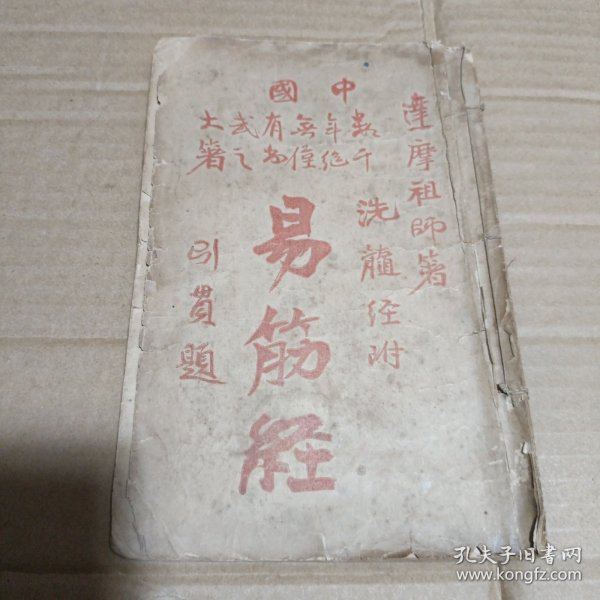 達摩祖師著
洗髓經附
中國
數千年絕無僅有為武之大著
易筋經
引貫題
孔夫子旧书网
www.kongfz.com